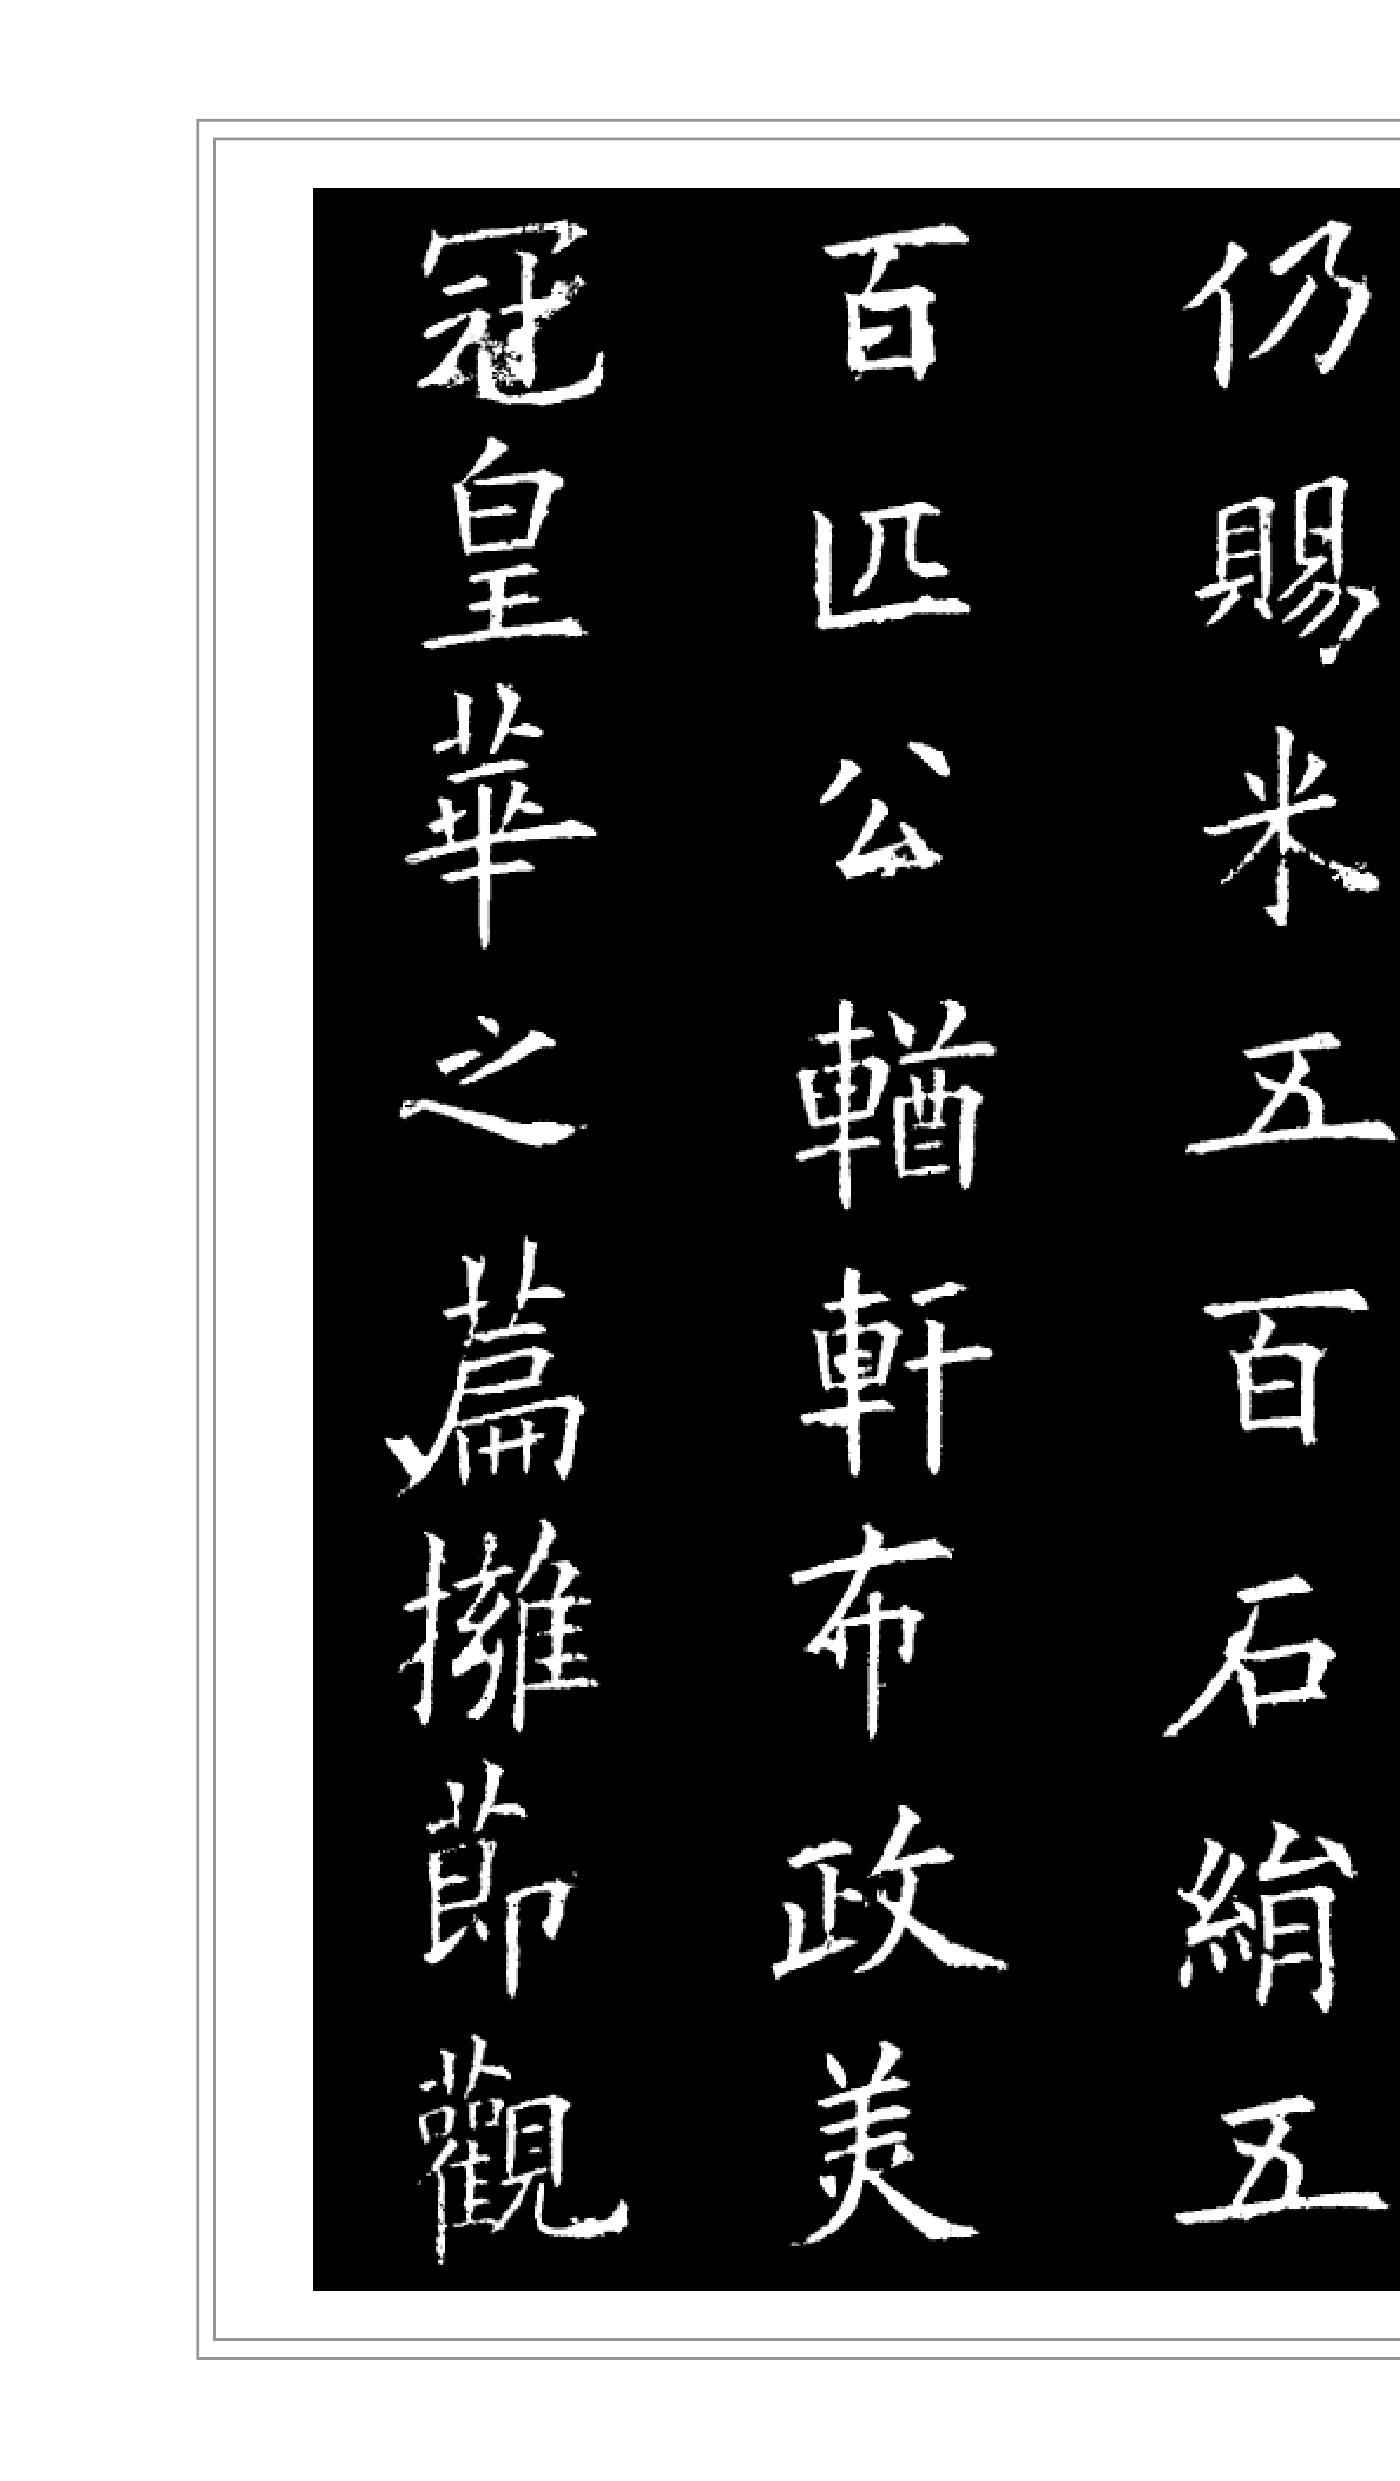 仍賜米五百石絹五
百匹公輶軒布政美
冠皇華之篇擁節觀